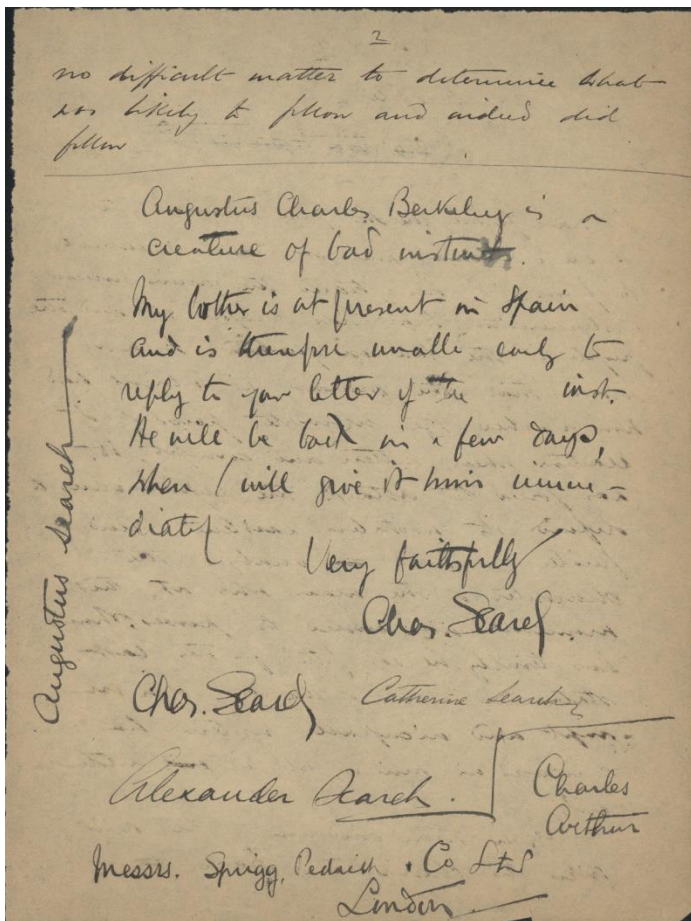 2
no difficult matter to determine what
was likely to follow and indeed did
follow
Augustus Charles Berkeley is a
creature of bad instincts.
My brother is at present in Spain
and is therefore unable early to
reply to your letter of the inst.
He will be back in a few days,
when I will give it him imme-
diately
Very faithfully
Chas. Search.
Augustus Search
Chas. Search
Catherine Search
Alexander Search.
Charles
Arthur
Messrs. Sprigg, & Co Ltd
London